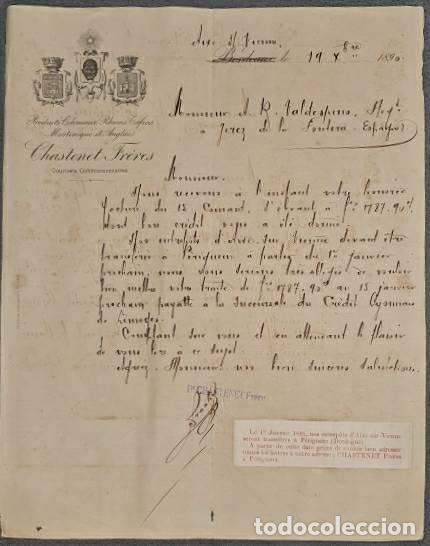 Aixe s/ Vienne
Bordeaux le 19 Xbre 1890
Produits Coloniaux, Rhums, Cafés
Martinique et Anglais
Chastenet Frères
Courtiers Commissionnaires
Monsieur A. R. Valdespino
à Jerez de la Frontera Espagne
Monsieur
Nous recevons à l'instant votre honorée
facture du 15 Courant, s'élevant à frs 1787.90
dont bon crédit vous a été donné
Nos entrepôts d'Aixe sur Vienne devant être
transférés à Périgueux à partir du 1er janvier
prochain, nous vous serions très obligés de vouloir
bien mettre votre traite de frs 1787.90 au 15 janvier
prochain payable à la succursale du Crédit Lyonnais
de Limoges
Comptant sur vous et en attendant le plaisir
de vous lire à ce sujet
Agréez, Monsieur, nos bien sincères Salutations
CHASTENET Frères
Le 1er Janvier 1891, nos entrepôts d'Aixe-sur-Vienne
seront transférés à Périgueux (Dordogne)
A partir de cette date prière de vouloir bien adresser
toutes les lettres à notre adresse : CHASTENET Frères
à Périgueux.
todocoleccion.net